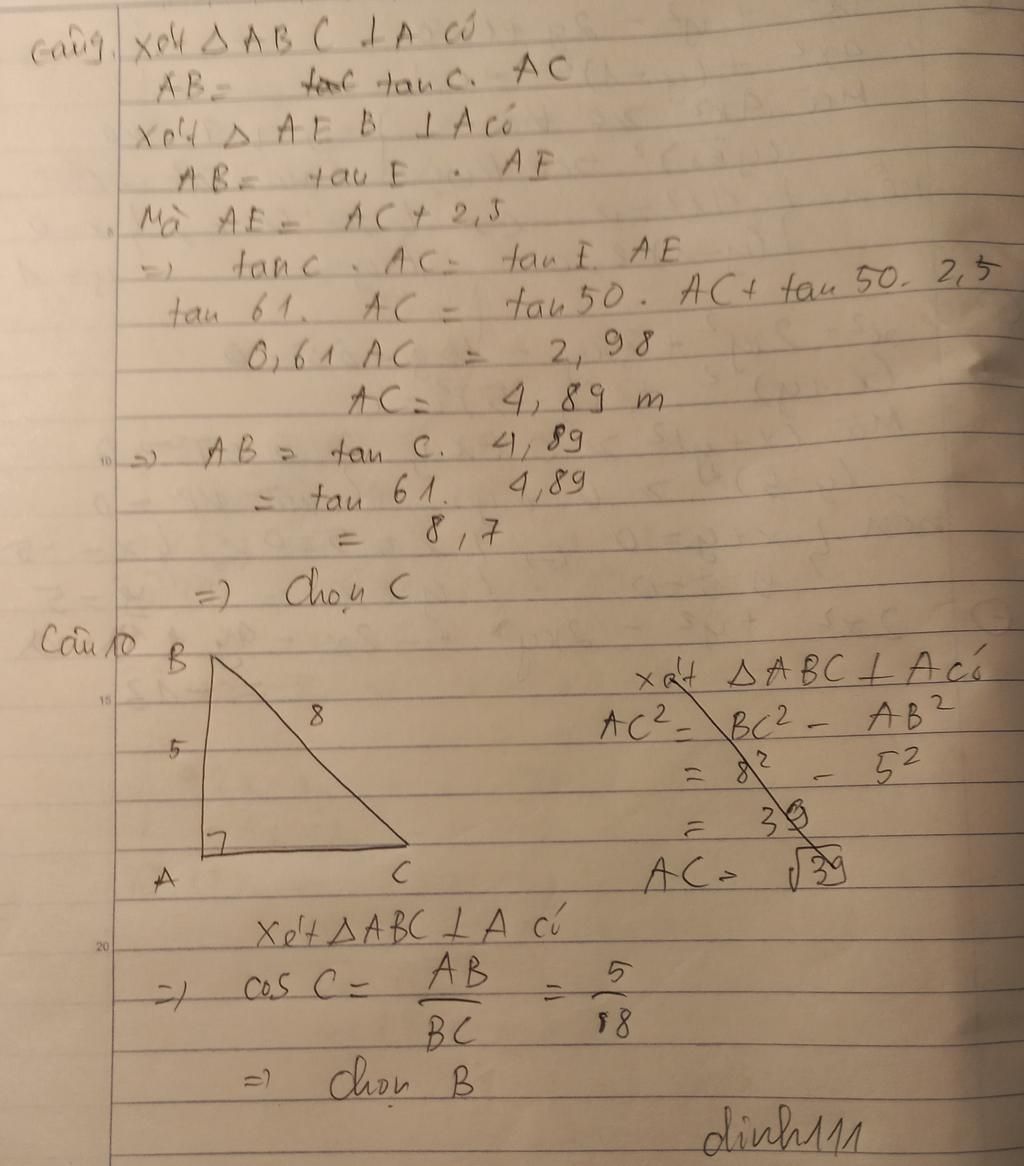 Câu 9. Xét △ ABC ⊥ A có
AB = tan C. AC
Xét △ AEB ⊥ A có
AB = tan E . AE
Mà AE = AC + 2,5
=> tan C . AC = tan E. AE
tan 61. AC = tan 50. AC + tan 50. 2,5
0,61 AC = 2,98
AC = 4,89 m
10
=> AB = tan C. 4,89
= tan 61. 4,89
= 8,7
=> Chọn C
Câu 10
B
8
5
A
C
15
xét △ ABC ⊥ A có
AC² = BC² - AB²
= 8² - 5²
= 39
AC = √39
20
Xét △ABC ⊥ A có
=> cos C = AB/BC = 5/8
=> Chọn B
dinh111